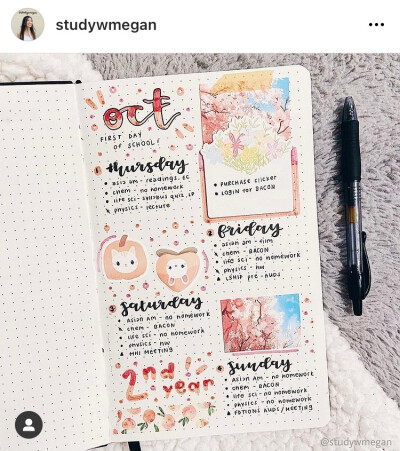 studywmegan
oct
FIRST DAY
OF SCHOOL!
1 thursday
asia am - readings, EC
chem - no homework
life sci - syllabus quiz, LP
physics - lecture
PURCHASE CLICKER
LOGIN for BACON
2 friday
asian am - film
chem - BACON
life sci - no homework
physics - HW
LSHIP PRE-AUDS
3 saturday
ASIAN AM - NO HOMEWORK
CHEM - BACON
life sci - no homework
physics - HW
MHI MEETING
4 sunday
ASIAN AM - NO HOMEWORK
CHEM - BACON
life sci - no homework
physics - no homework
POTIONS AUDS/MEETING
2nd
year
@studywmegan